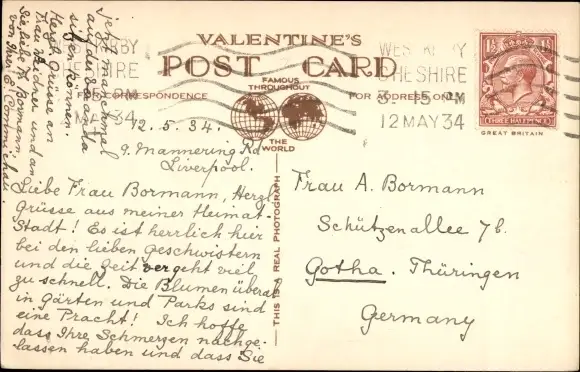 VALENTINE'S
POST CARD
FAMOUS
THROUGHOUT
THE
WORLD
FOR CORRESPONDENCE
FOR ADDRESS ONLY
WEST KIRBY
CHESHIRE
3 15 PM
12 MAY 34
1½ 1½
THREE HALFPENCE
GREAT BRITAIN
THIS IS A REAL PHOTOGRAPH
12.5.34.
9. Mannering Rd
Liverpool.
Liebe Frau Bormann, Herzl.
Grüsse aus meiner Heimat-
Stadt! Es ist herrlich hier
bei den lieben Geschwistern
und die Zeit vergeht viel
zu schnell. Die Blumen überal
in Gärten und Parks sind
eine Pracht! Ich hoffe
dass Ihre Schmerzen nachge-
lassen haben und dass Sie
jetzt manchmal
auf der Veranda
sitzen können.
Herzl. Grüsse an
Frau Weidner und an
Sie, liebe Fr. Bormann
von Ihrer E.
Frau A. Bormann
Schützenallee 7b.
Gotha. Thüringen
Germany